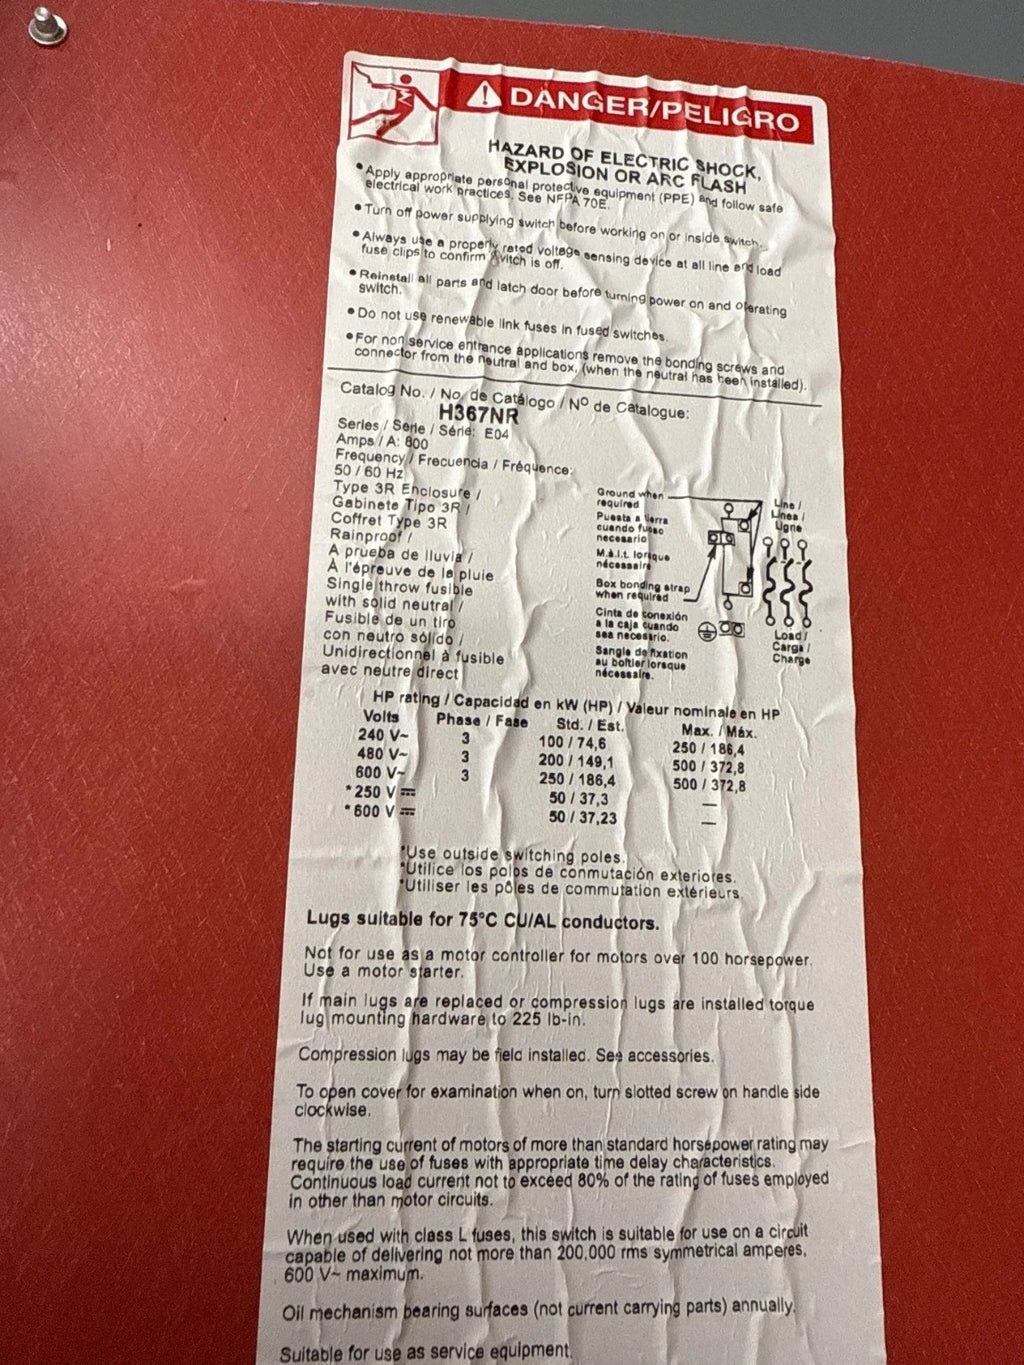 DANGER/PELIGRO
HAZARD OF ELECTRIC SHOCK,
EXPLOSION OR ARC FLASH
• Apply appropriate personal protective equipment (PPE) and follow safe
electrical work practices. See NFPA 70E.
• Turn off power supplying switch before working on or inside switch.
• Always use a properly rated voltage sensing device at all line and load
fuse clips to confirm switch is off.
• Reinstall all parts and latch door before turning power on and operating
switch.
• Do not use renewable link fuses in fused switches.
• For non service entrance applications remove the bonding screws and
connector from the neutral and box, (when the neutral has been installed).
Catalog No. / No. de Catálogo / Nº de Catalogue:
H367NR
Series / Serie / Série: E04
Amps / A: 800
Frequency / Frecuencia / Fréquence:
50 / 60 Hz
Type 3R Enclosure /
Gabinete Tipo 3R /
Coffret Type 3R
Rainproof /
A prueba de lluvia /
À l'épreuve de la pluie
Single throw fusible
with solid neutral /
Fusible de un tiro
con neutro sólido /
Unidirectionnel à fusible
avec neutre direct
Ground when
required
Puesta a tierra
cuando fuese
necesario
M.à.l.t. lorsque
nécessaire
Box bonding strap
when required
Cinta de conexión
a la caja cuando
sea necesario.
Sangle de fixation
au boîtier lorsque
nécessaire.
Line /
Línea /
Ligne
Load /
Carga /
Charge
HP rating / Capacidad en kW (HP) / Valeur nominale en HP
Volts Phase / Fase Std. / Est. Max. / Máx.
240 V~ 3 100 / 74,6 250 / 186,4
480 V~ 3 200 / 149,1 500 / 372,8
600 V~ 3 250 / 186,4 500 / 372,8
*250 V ⎓ 50 / 37,3 —
*600 V ⎓ 50 / 37,23 —
*Use outside switching poles.
*Utilice los polos de conmutación exteriores.
*Utiliser les pôles de commutation extérieurs.
Lugs suitable for 75°C CU/AL conductors.
Not for use as a motor controller for motors over 100 horsepower.
Use a motor starter.
If main lugs are replaced or compression lugs are installed torque
lug mounting hardware to 225 lb-in.
Compression lugs may be field installed. See accessories.
To open cover for examination when on, turn slotted screw on handle side
clockwise.
The starting current of motors of more than standard horsepower rating may
require the use of fuses with appropriate time delay characteristics.
Continuous load current not to exceed 80% of the rating of fuses employed
in other than motor circuits.
When used with class L fuses, this switch is suitable for use on a circuit
capable of delivering not more than 200,000 rms symmetrical amperes,
600 V~ maximum.
Oil mechanism bearing surfaces (not current carrying parts) annually.
Suitable for use as service equipment.